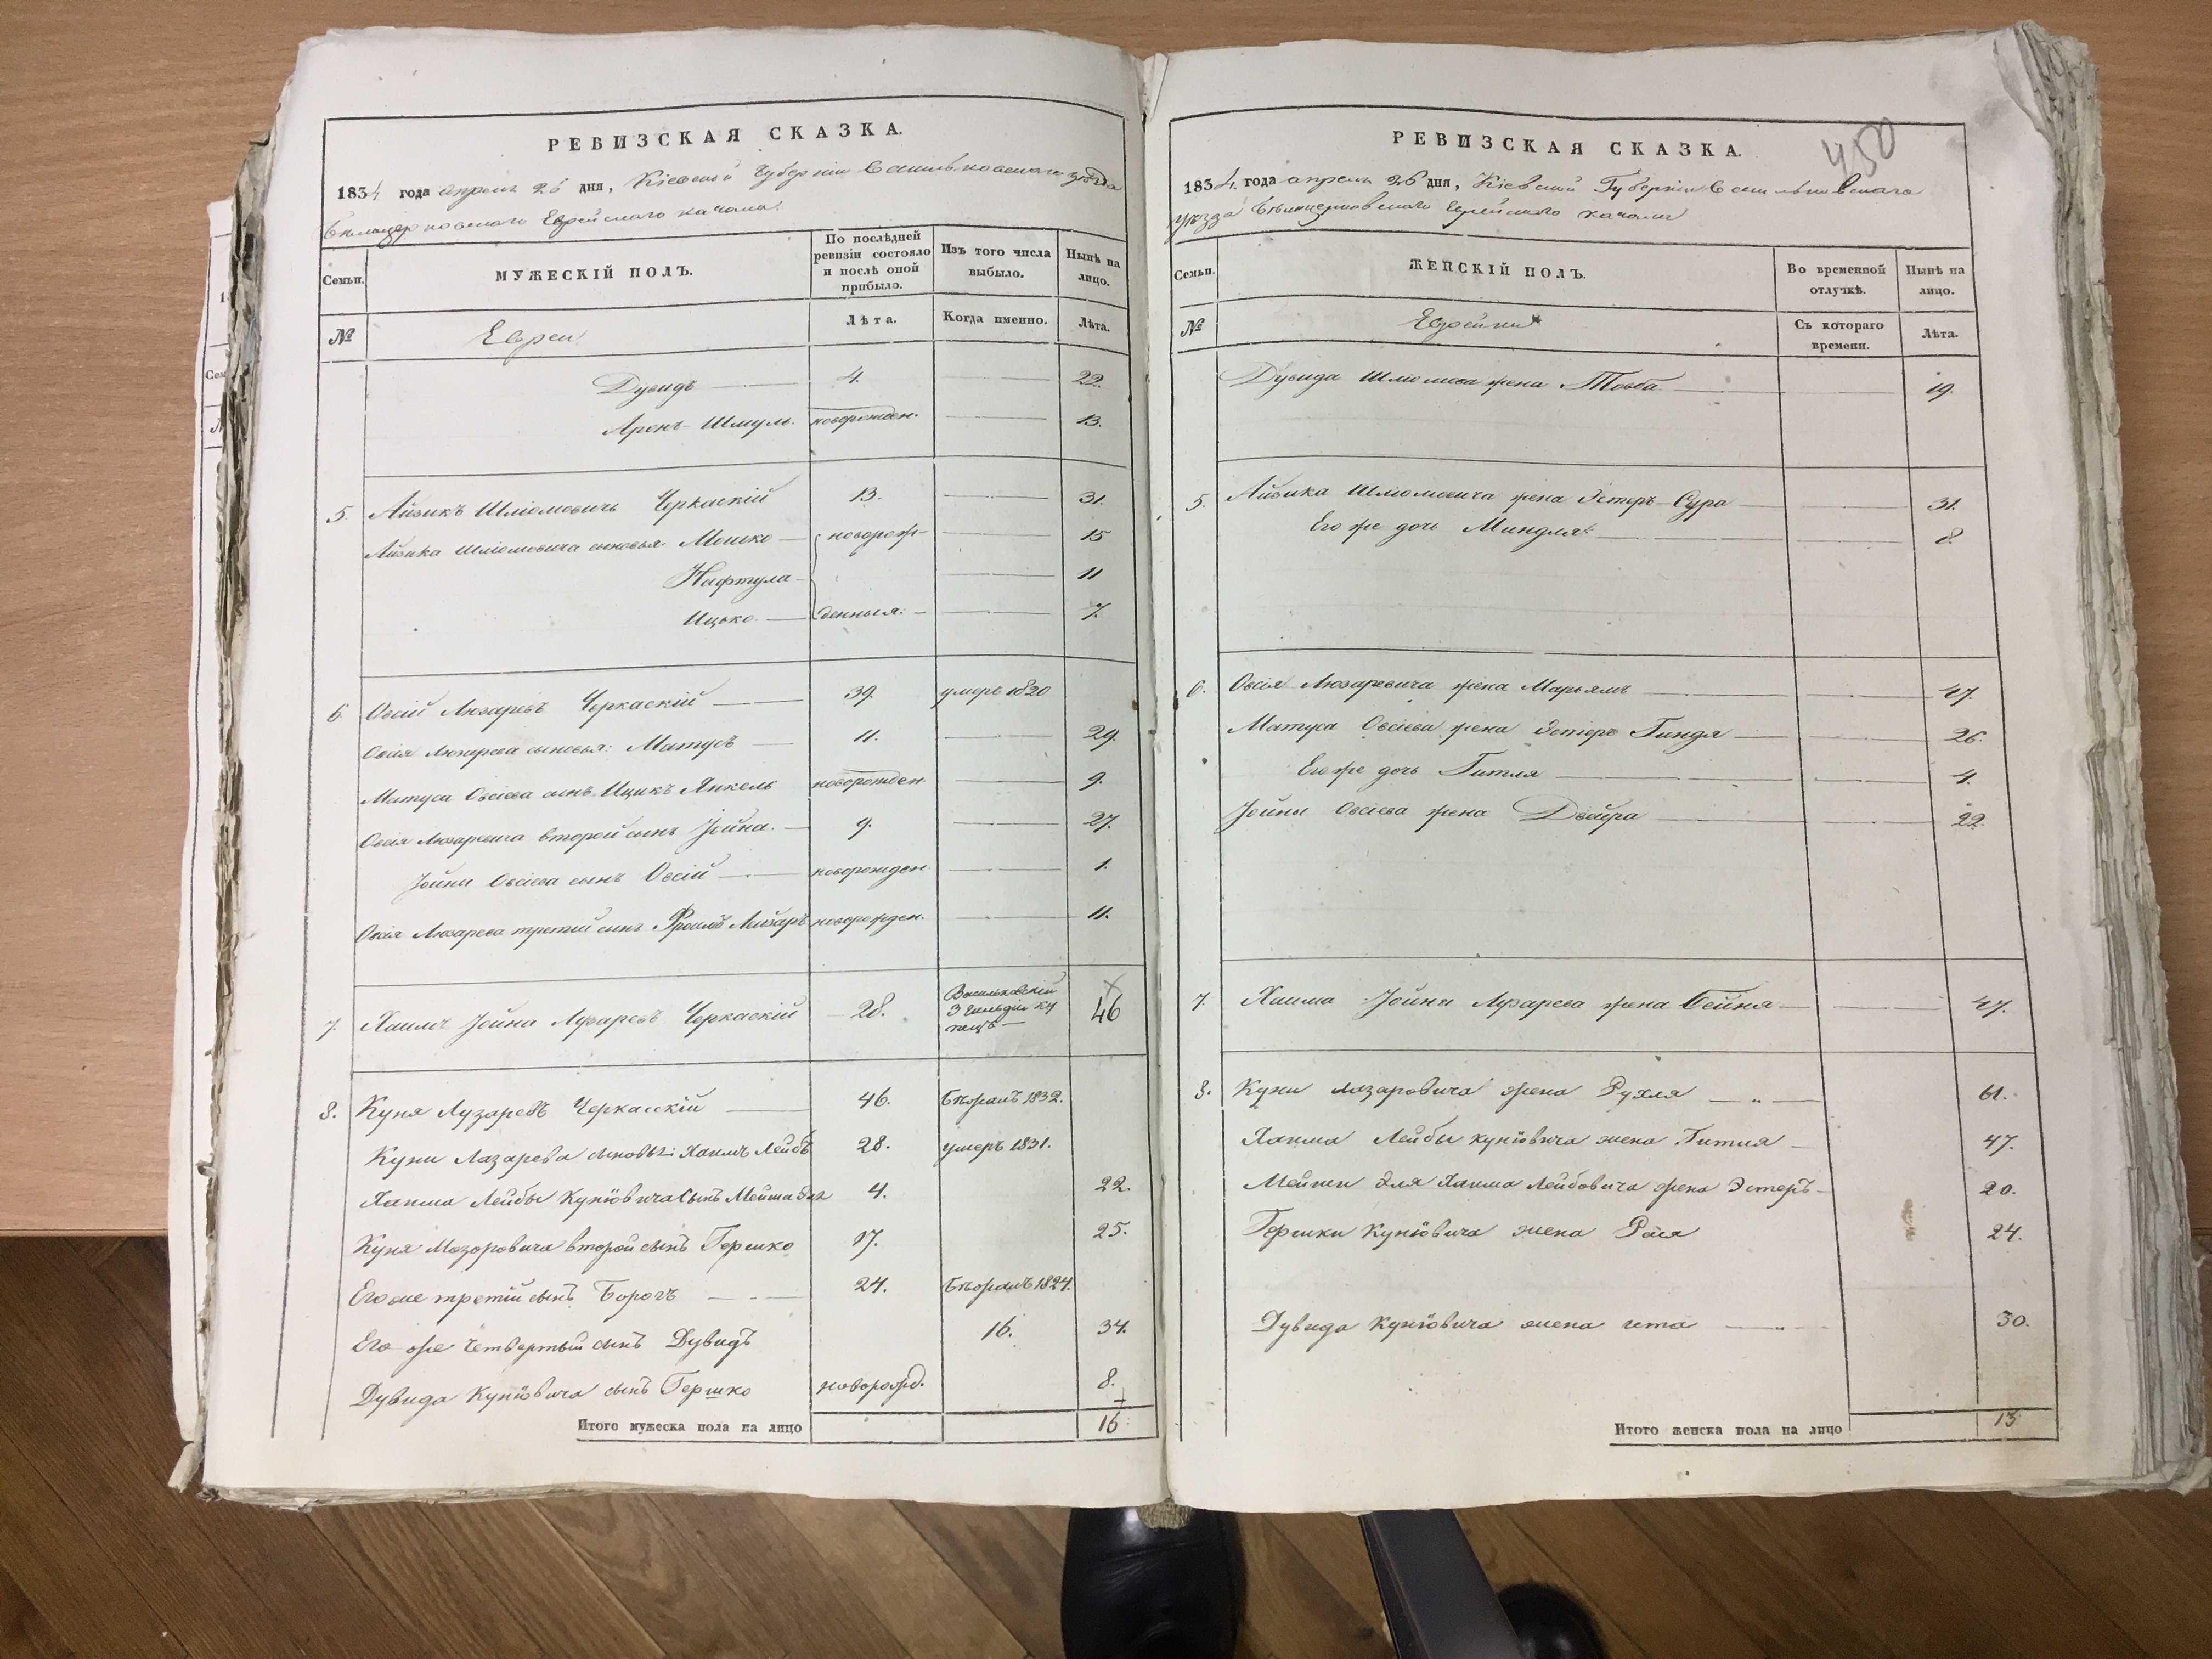 РЕВИЗСКАЯ СКАЗКА.
1834 года апреля 26 дня, Кіевской Губерніи Васильковскаго уѣзда
Бѣлоцерковскаго Еврейскаго кагала.
Семьи.
МУЖЕСКІЙ ПОЛЪ.
По послѣдней ревизіи состояло и послѣ оной прибыло.
Изъ того числа выбыло.
Нынѣ на лицо.
№
Евреи
Лѣта.
Когда именно.
Лѣта.
Дувидъ 4. 22.
Аронъ-Шмуль. новорожден. 13.
5. Айзикъ Шліомовичъ Черкаскій 13. 31.
Айзика Шліомовича сыновья: Мошко новорож- 15
Нафтула 11
Ицько. денныя. 7.
6. Овсій Люзаревъ Черкаскій 39. умеръ 1820
Овсія Люзарева сыновья: Матусъ 11. 29.
Матуса Овсіева сынъ Ицикъ Янкель новорожден. 9.
Овсія Люзаревича второй сынъ Іойна. 9. 27.
Іойни Овсіева сынъ Овсій новорожден. 1.
Овсія Люзарева третій сынъ новорожден. 11.
7. Хаимъ Іойна Лузаревъ Черкаскій 28. Васильковскій 3 гильдіи купецъ 46
8. Куня Лузаревъ Черкасскій 46. Бѣжалъ 1832.
Куни Лазарева сыновья: Хаимъ Лейбъ 28. умеръ 1831.
Хаима Лейбы Куніовича сынъ 4. 22.
Куня второй сынъ Гершко 17. 25.
Его же третій сынъ Борохъ 24. Бѣжалъ 1824.
Его же четвертый сынъ Дувидъ 16. 34.
Дувида Куніовича сынъ Гершко новорожд. 8.
Итого мужеска пола на лицо 16
450
РЕВИЗСКАЯ СКАЗКА.
1834 года апреля 26 дня, Кіевской Губерніи Васильковскаго
уѣзда Бѣлоцерковскаго Еврейскаго кагала
Семьи.
ЖЕНСКІЙ ПОЛЪ.
Во временной отлучкѣ.
Нынѣ на лицо.
№
Еврейки
Съ котораго времени.
Лѣта.
Дувида Шліомова жена Товба. 19.
5. Айзика Шліомовича жена Эстеръ-Сура 31.
Его же дочь Миндля. 8.
6. Овсія Люзаревича жена Марьямъ 47.
Матуса Овсіева жена Эстеръ Гиндя 26.
Его же дочь Гитля 4.
Іойни Овсіева жена Двойра 22.
7. Хаима Іойни Лузарева жена Бейня 47.
8. Куни Лазаровича жена Рухля 61.
Хаима Лейбы Куніовича жена Гитля 47.
Хаима Лейбовича жена Эстеръ 20.
Гершки Куніовича жена Рася 24.
Дувида Куніовича жена Гита 30.
Итого женска пола на лицо 13